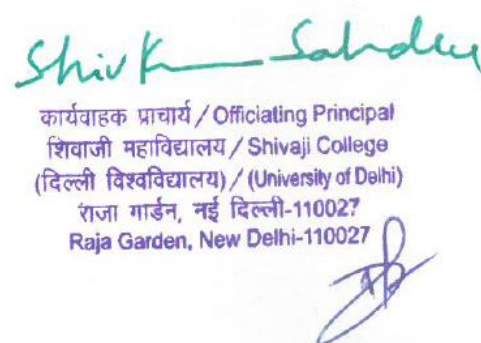 Shiv K Sahdev
कार्यवाहक प्राचार्य / Officiating Principal
शिवाजी महाविद्यालय / Shivaji College
(दिल्ली विश्वविद्यालय) / (University of Delhi)
राजा गार्डन, नई दिल्ली-110027
Raja Garden, New Delhi-110027